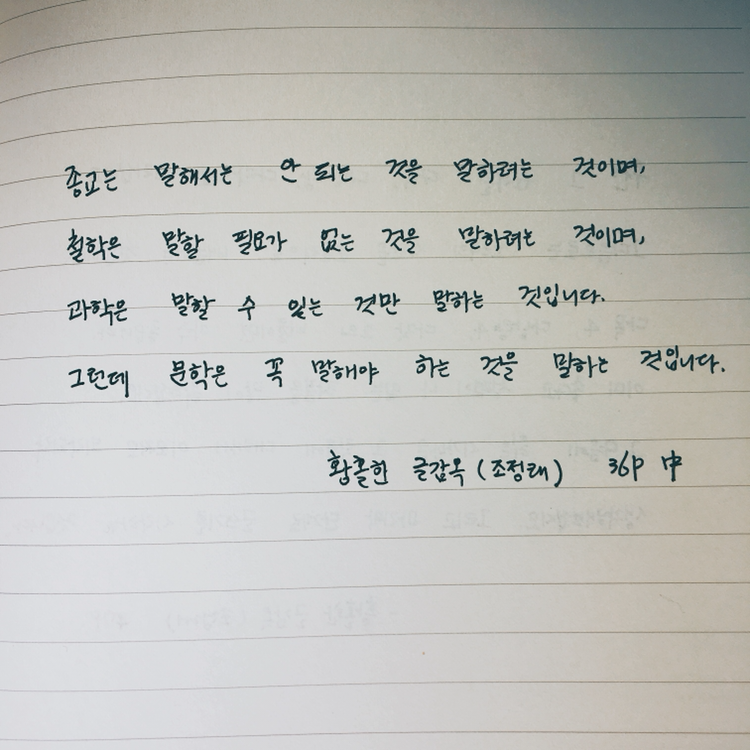 종교는 말해서는 안 되는 것을 말하려는 것이며,
철학은 말할 필요가 없는 것을 말하려는 것이며,
과학은 말할 수 있는 것만 말하는 것입니다.
그런데 문학은 꼭 말해야 하는 것을 말하는 것입니다.
황홀한 글감옥 (조정래) 36P 中